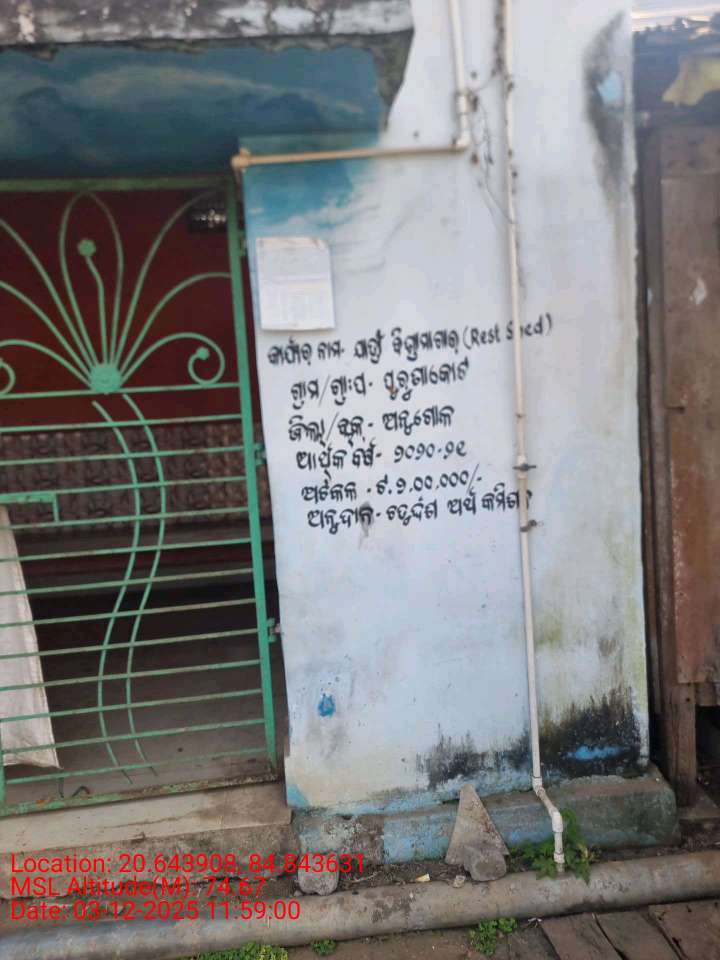 କାର୍ଯ୍ୟର ନାମ- ଯାତ୍ରୀ ବିଶ୍ରାମାଗାର (Rest Shed)
ଗ୍ରାମ/ଗ୍ରାଃପ- ପୁରୁଣାକୋଟ
ଜିଲ୍ଲା/ବ୍ଲକ୍- ଅନୁଗୋଳ
ଆର୍ଥିକ ବର୍ଷ- ୨୦୨୦-୨୧
ଅଟକଳ -ଟ.୨.୦୦.୦୦୦/-
ଅନୁଦାନ- ଚତୁର୍ଦ୍ଦଶ ଅର୍ଥ କମିଶନ
Location: 20.643908, 84.843631
MSL Altitude(M): 74.67
Date: 03-12-2025 11:59:00